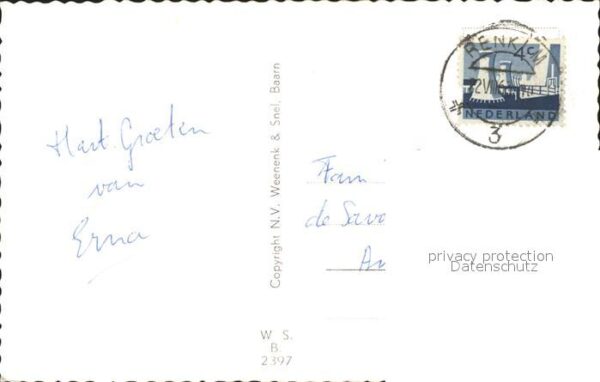 Hart. Groeten
van
Erna
Copyright N.V. Weenenk & Snel, Baarn
W S.
B.
2397
Fam
de Savo
RENKUM
4c
NEDERLAND
3
privacy protection
Datenschutz